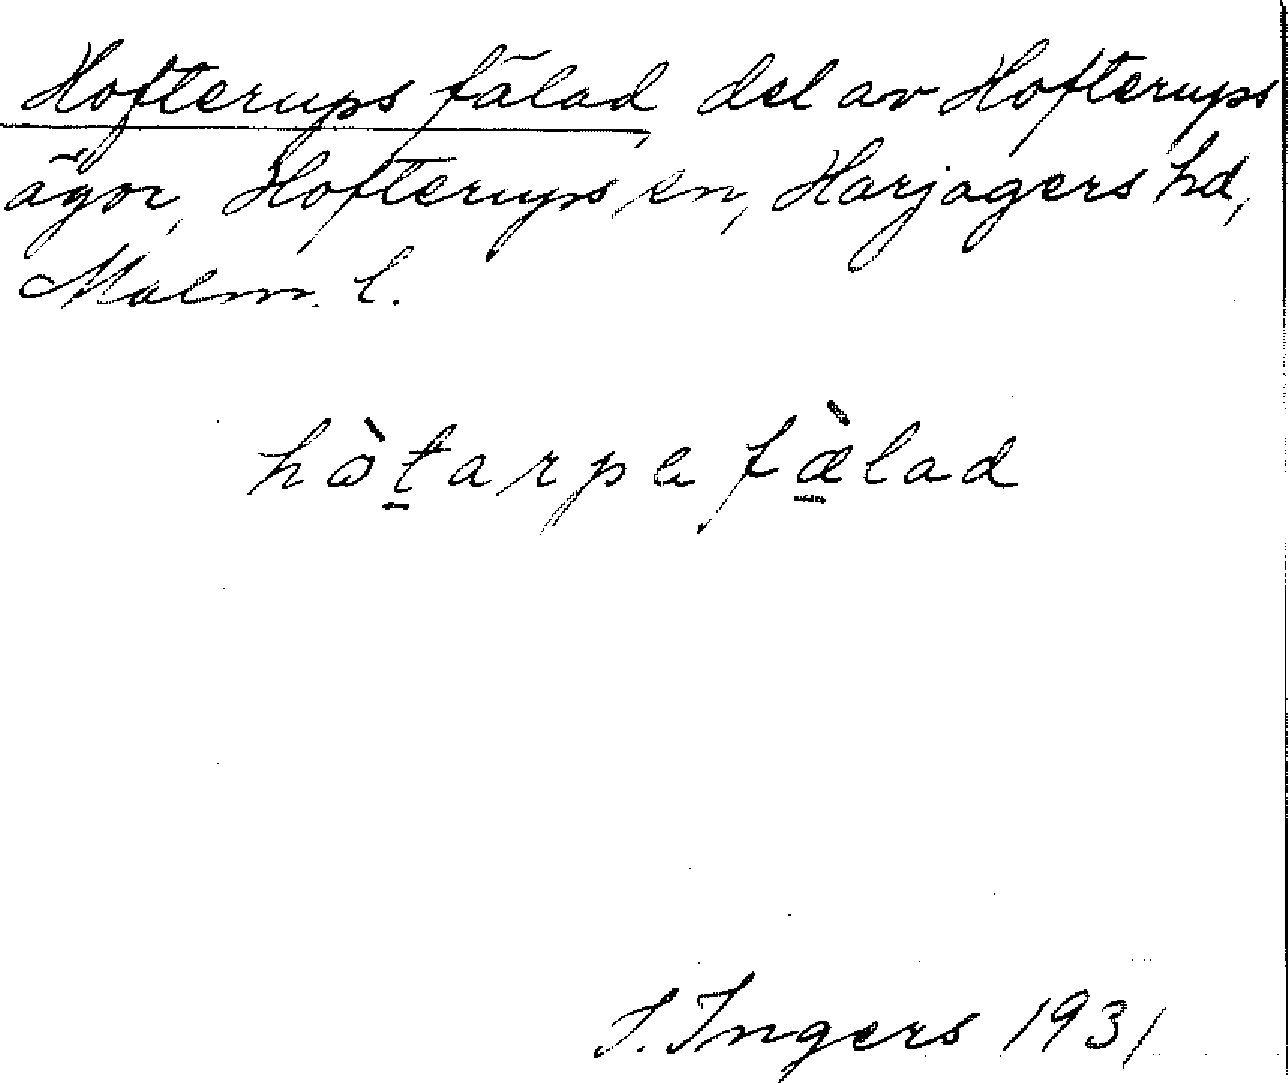 Hofterups fälad, del av Hofterups
ägor, Hofterups sn, Harjagers hd,
Malm. l.
hòt̠arpa fæ̠̀lad
I. Ingers 1931